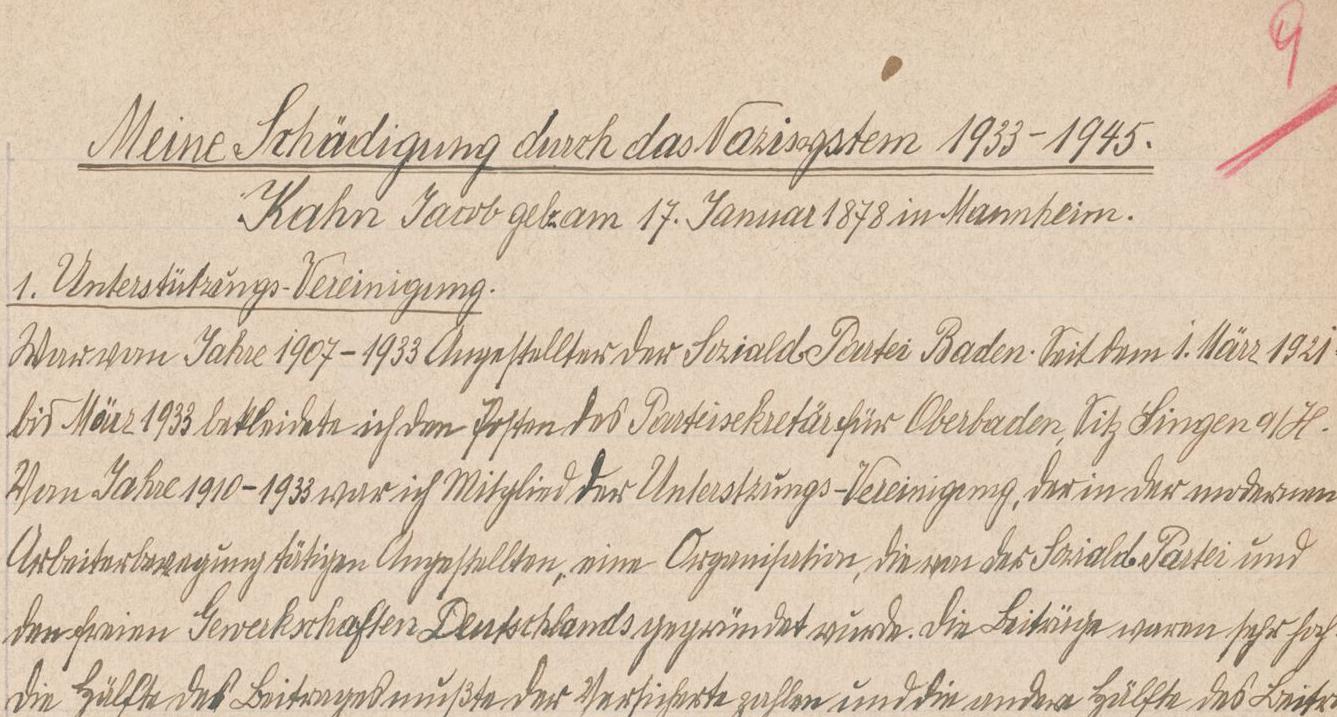 9
Meine Schädigung durch das Nazisystem 1933-1945.
Kahn Jacob geb. am 17. Januar 1878 in Mannheim.
1. Unterstützungs-Vereinigung.
War vom Jahre 1907-1933 Angestellter der Soziald. Partei Baden. Seit dem 1. März 1921
bis März 1933 bekleidete ich den Posten des Parteisekretär für Oberbaden, Sitz Singen a/H.
Vom Jahre 1910-1933 war ich Mitglied der Unterstzungs-Vereinigung, der in der modernen
Arbeiterbewegung tätigen Angestellten, eine Organisation, die von der Soziald. Partei und
den freien Gewerkschaften Deutschlands gegründet wurde. Die Beiträge waren sehr hoch
die Hälfte des Beitrages mußte der Versicherte zahlen und die andere Hälfte des Beitr